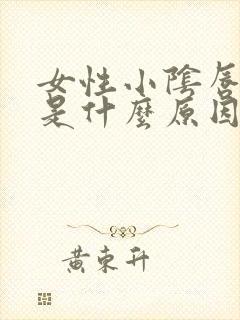 女性小陰唇
是什麼原因
黄東升